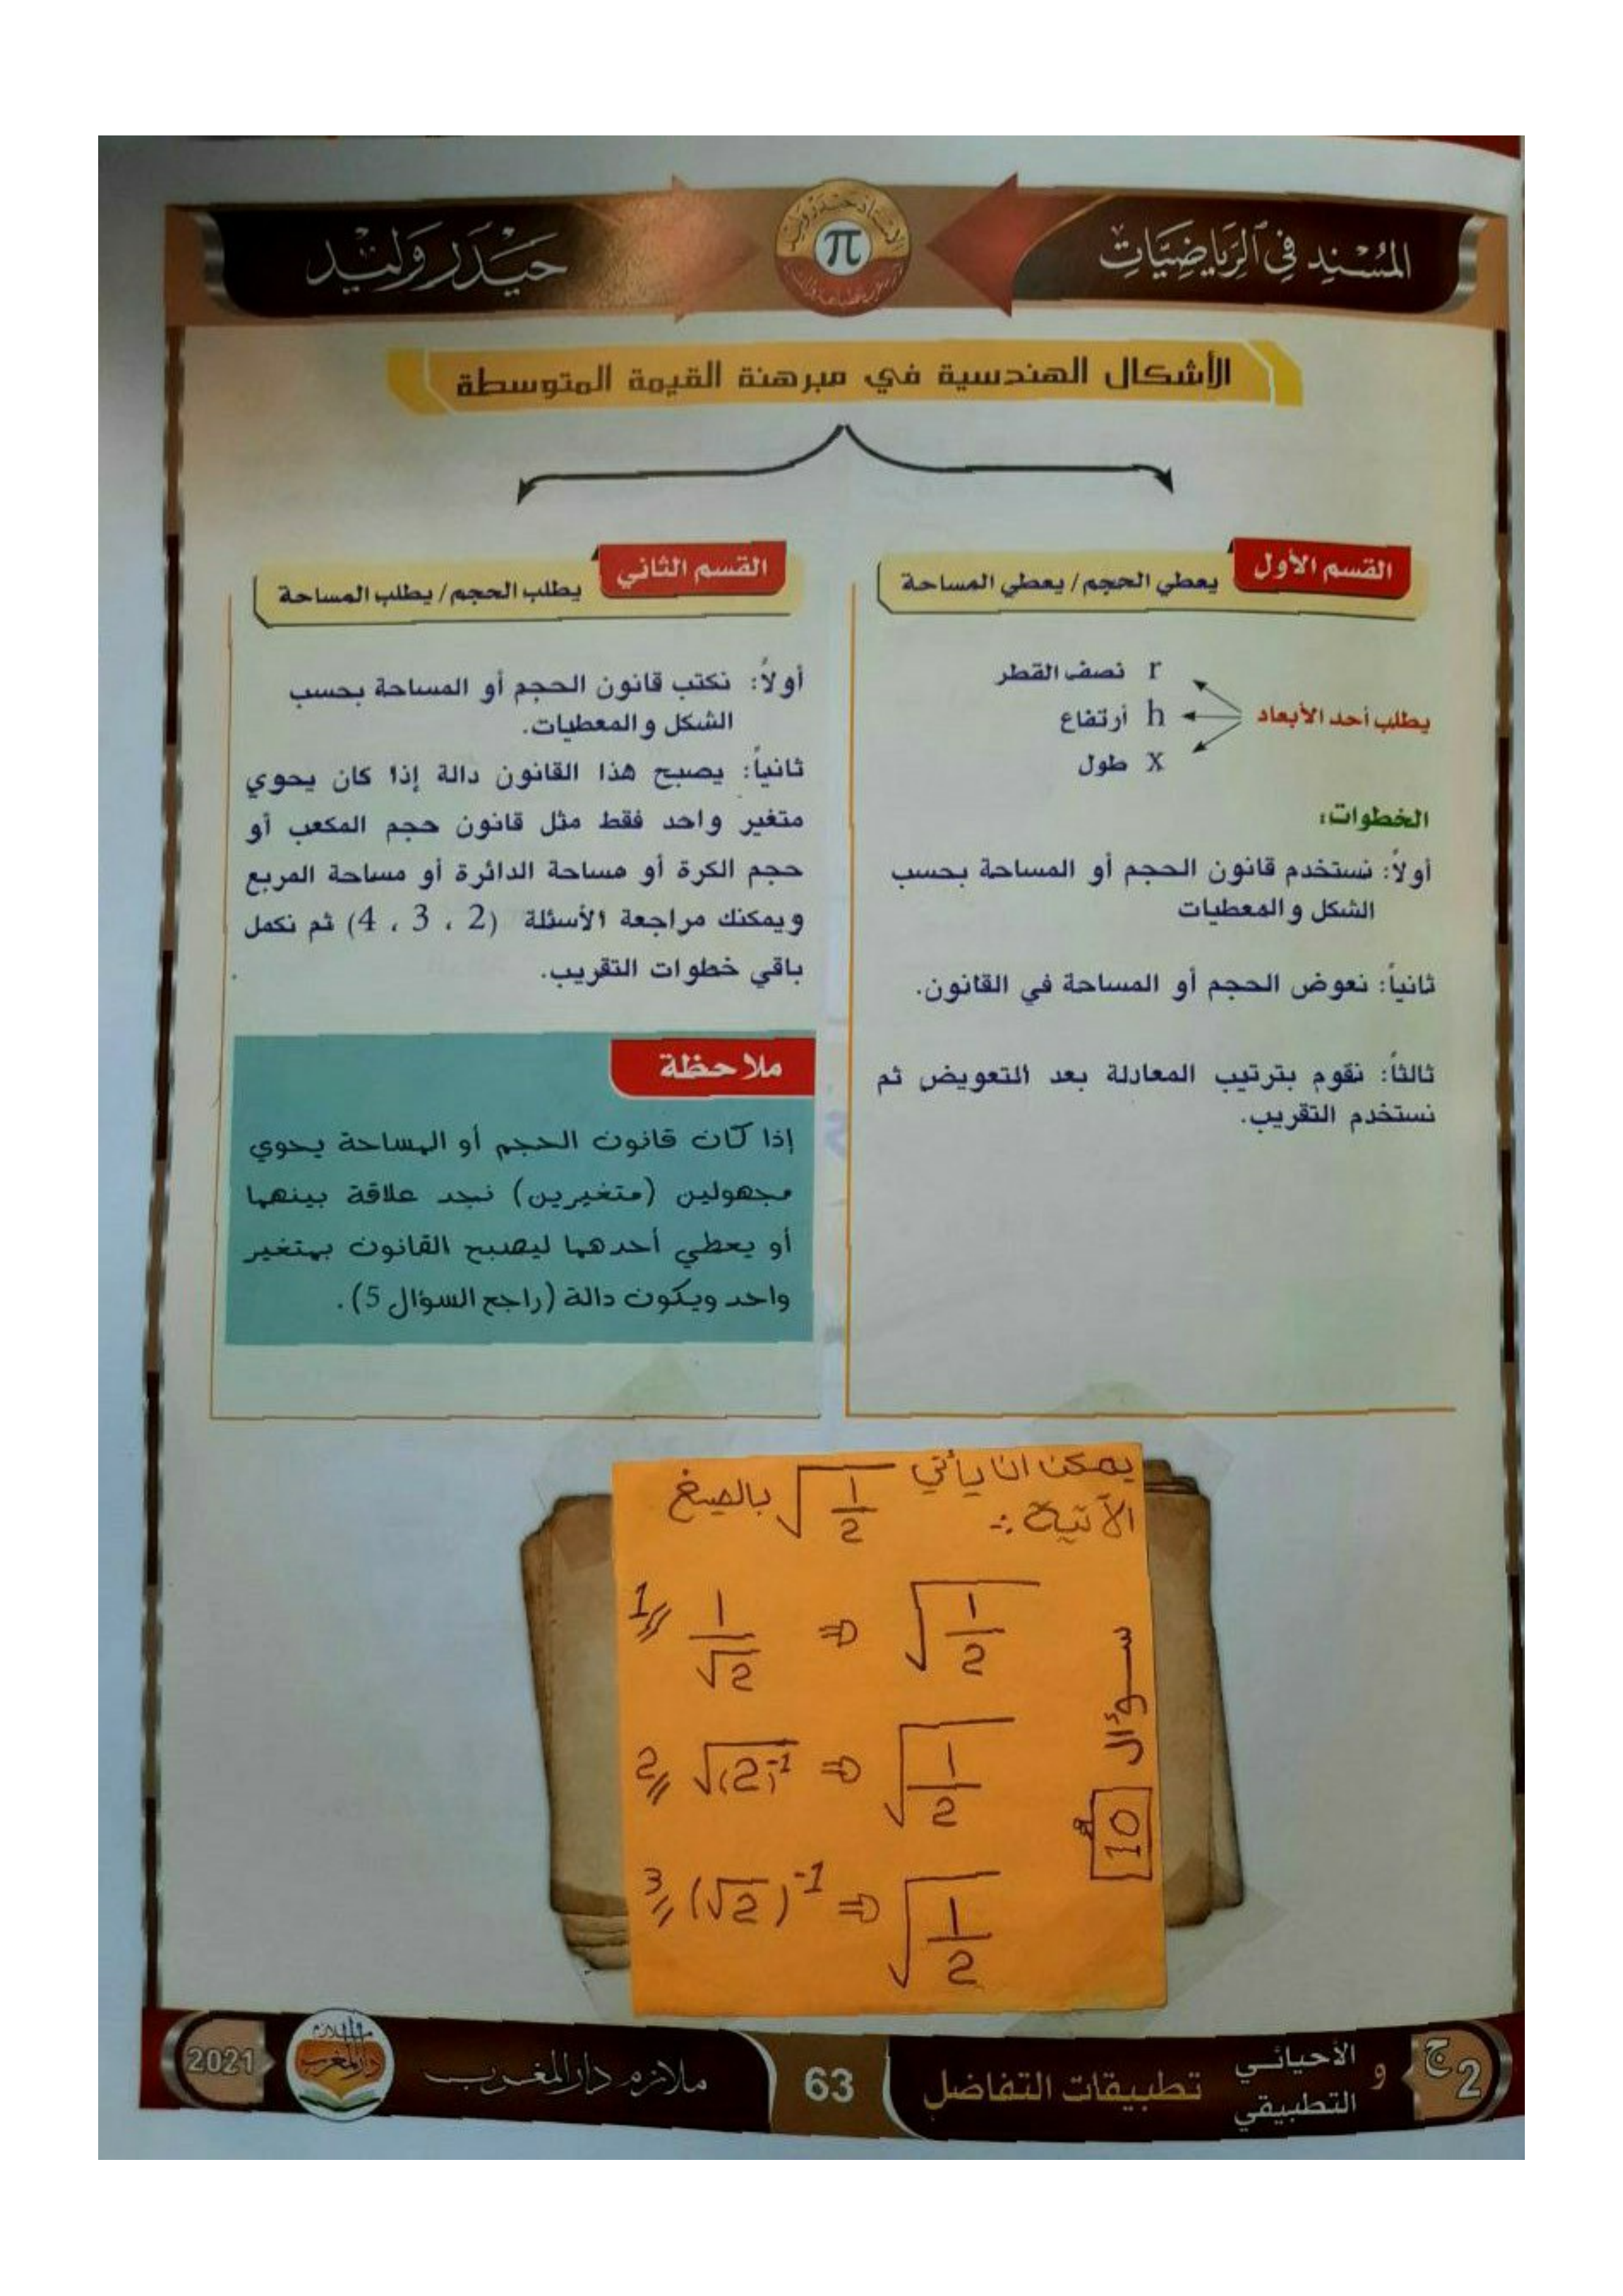 المُسْنِد فِي الرِّيَاضِيَّاتِ
π
حَيْدَر وَلِيد
الأشكال الهندسية في مبرهنة القيمة المتوسطة
القسم الأول
يعطي الحجم / يعطي المساحة
يطلب أحد الأبعاد
r نصف القطر
h أرتفاع
x طول
الخطوات:
أولاً: نستخدم قانون الحجم أو المساحة بحسب
الشكل والمعطيات
ثانياً: نعوض الحجم أو المساحة في القانون.
ثالثاً: نقوم بترتيب المعادلة بعد التعويض ثم
نستخدم التقريب.
القسم الثاني
يطلب الحجم / يطلب المساحة
أولاً: نكتب قانون الحجم أو المساحة بحسب
الشكل والمعطيات.
ثانياً: يصبح هذا القانون دالة إذا كان يحوي
متغير واحد فقط مثل قانون حجم المكعب أو
حجم الكرة أو مساحة الدائرة أو مساحة المربع
ويمكنك مراجعة الأسئلة (2 ، 3 ، 4) ثم نكمل
باقي خطوات التقريب.
ملاحظة
إذا كان قانون الحجم أو المساحة يحوي
مجهولين (متغيرين) نجد علاقة بينهما
أو يعطي أحدهما ليصبح القانون بمتغير
واحد ويكون دالة (راجع السؤال 5).
يمكن ان يأتي √(1/2) بالصيغ
الآتية :-
1// 1/√2 ⇒ √(1/2)
2// √(2)⁻¹ ⇒ √(1/2)
3// (√2)⁻¹ ⇒ √(1/2)
سؤال 10
ج2
الأحيائي
و
التطبيقي
تطبيقات التفاضل
63
ملازم دار المغرب
2021